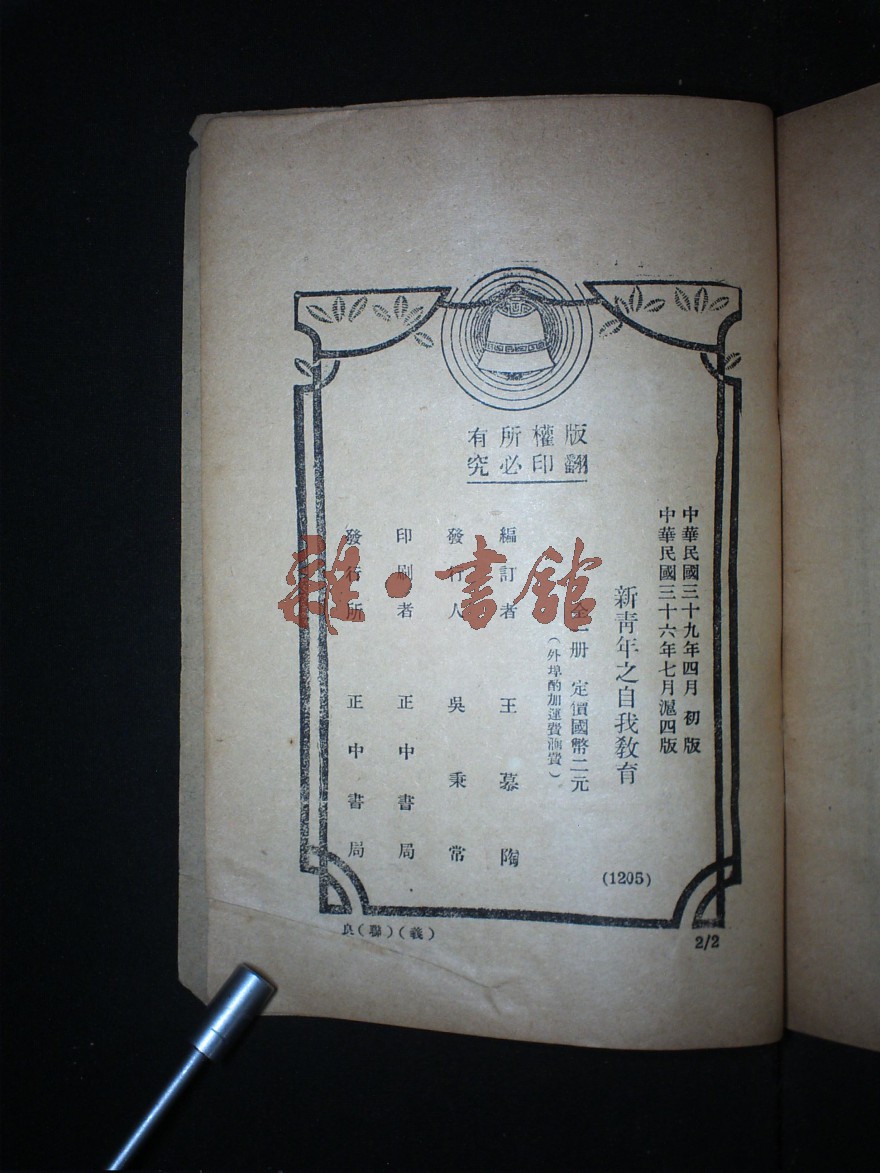 版權所有
翻印必究
中華民國三十九年四月 初版
中華民國三十六年七月滬四版
新青年之自我教育
(1205)
全一册 定價國幣二元
(外埠酌加運費滙費)
編訂者 王慕陶
發行人 吳秉常
印刷者 正中書局
發行所 正中書局
良(聯)(義)
2/2
雜·書館